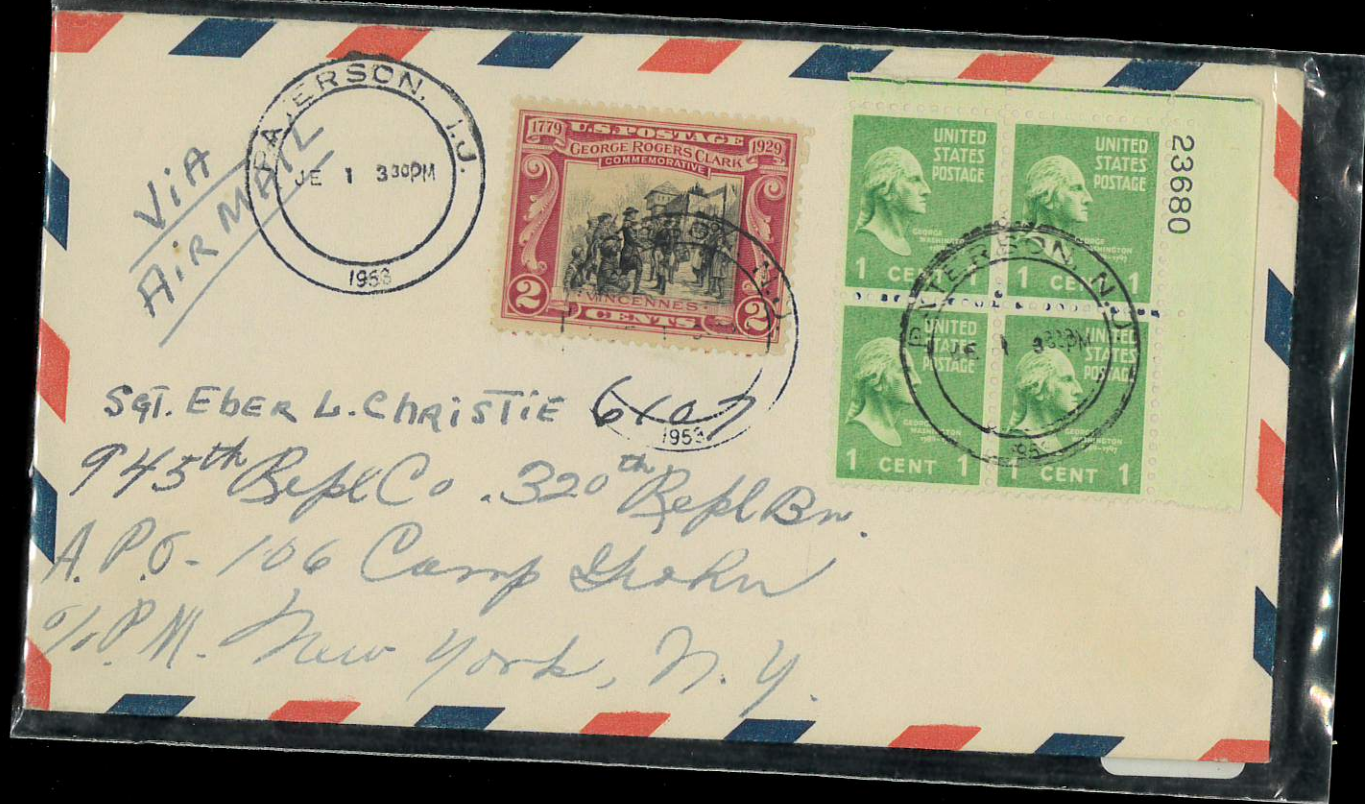 PATERSON, N.J.
JE 1 330PM
1953
VIA
AIR MAIL
1779 U.S. POSTAGE 1929
GEORGE ROGERS CLARK
COMMEMORATIVE
VINCENNES
2 CENTS 2
N.J.
1953
UNITED
STATES
POSTAGE
GEORGE
WASHINGTON
1 CENT 1
UNITED
STATES
POSTAGE
GEORGE
WASHINGTON
1 CENT 1
UNITED
STATES
POSTAGE
GEORGE
WASHINGTON
1789-1797
1 CENT 1
UNITED
STATES
POSTAGE
GEORGE
WASHINGTON
1789-1797
1 CENT 1
23680
PATERSON, N.J.
JE 1 330PM
SGT. EBER L. CHRISTIE
945th Repl Co. 320th Repl Bn.
A.P.O - 106 Camp Grohn
c/o P.M. New York, N.Y.